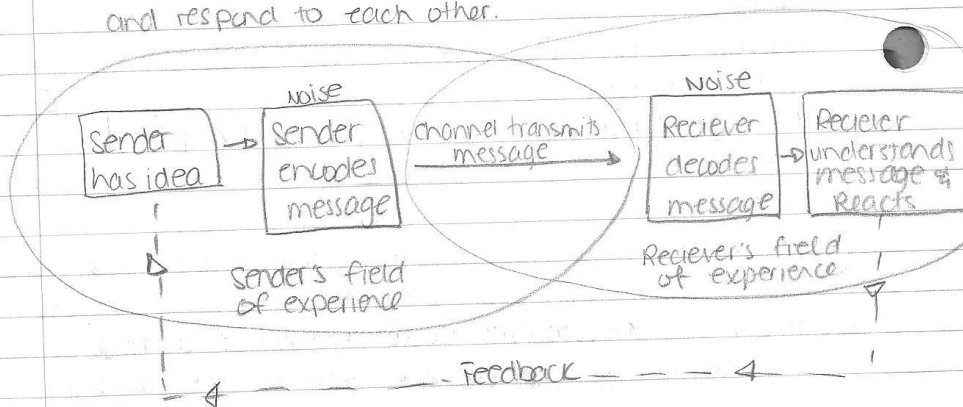 and respond to each other.
Noise
Sender
has idea
Sender
encodes
message
channel transmits
message
Noise
Reciever
decodes
message
Reciever
understands
message &
Reacts
Sender's field
of experience
Reciever's field
of experience
Feedback